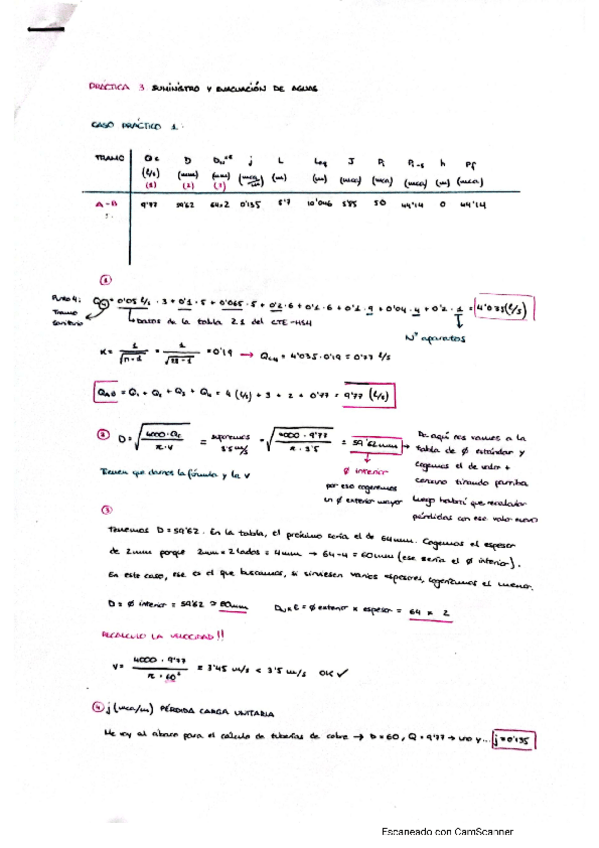 PRÁCTICA 3 SUMINISTRO Y EVACUACIÓN DE AGUAS
CASO PRÁCTICO 1:
TRAMO Qc D j L Leq J Pi Pi-s h Pf
(l/s) (mm) (mm) (mca/m) (m) (m) (mca) (mca) (mca) (m) (mca)
(1) (2) (3)
A-B 9'77 59'62 64x2 0'135 5'7 10'046 50 44'14 0 44'14
①
Punto 4:
Tramo
= 0'05 l/s · 3 + 0'1 · 5 + 0'065 · 5 + 0'2 · 6 + 0'1 · 6 + 0'1 · 9 + 0'04 · 4 + 0'2 · 1 = 4'035 (l/s)
Datos de la tabla 2.1 del CTE-HS4
Nº aparatos
K = 1/√(n-1) = = 0'19 → = 4'035 · 0'19 = 0'77 l/s
= Q1 + Q2 + Q3 + Q4 = 4 (l/s) + 3 + 2 + 0'77 = 9'77 (l/s)
② D = √(4000 · Qc / π · v) = suponemos 3'5 m/s = √(4000 · 9'77 / π · 3'5) = 59'62 mm
De aquí nos vamos a la
tabla de Ø estándar y
cogemos el de valor +
cercano tirando parriba
luego habrá que recalcular
pérdidas con ese valor nuevo
Ø interior
por eso cogeremos
un Ø exterior mayor
Tienen que darnos la fórmula y la v
③
Tenemos D = 59'62. En la tabla, el próximo sería el de 64 mm. Cogemos el espesor
de 2 mm porque 2mm = 2 lados = 4mm → 64-4 = 60mm (ese sería el Ø interior).
En este caso, ese es el que buscamos, si sirviesen varios espesores, cogeríamos el menor.
D = Ø interior = 59'62 ≈ 60mm = Ø exterior x espesor = 64 x 2
RECALCULO LA VELOCIDAD!!
v = 4000 · 9'77 / π · 60² = 3'45 m/s < 3'5 m/s OK ✓
④ j (mca/m) PÉRDIDA CARGA UNITARIA
Me voy al ábaco para el cálculo de tuberías de cobre → D = 60, Q = 9'77 → uno y... j = 0'135
Escaneado con CamScanner